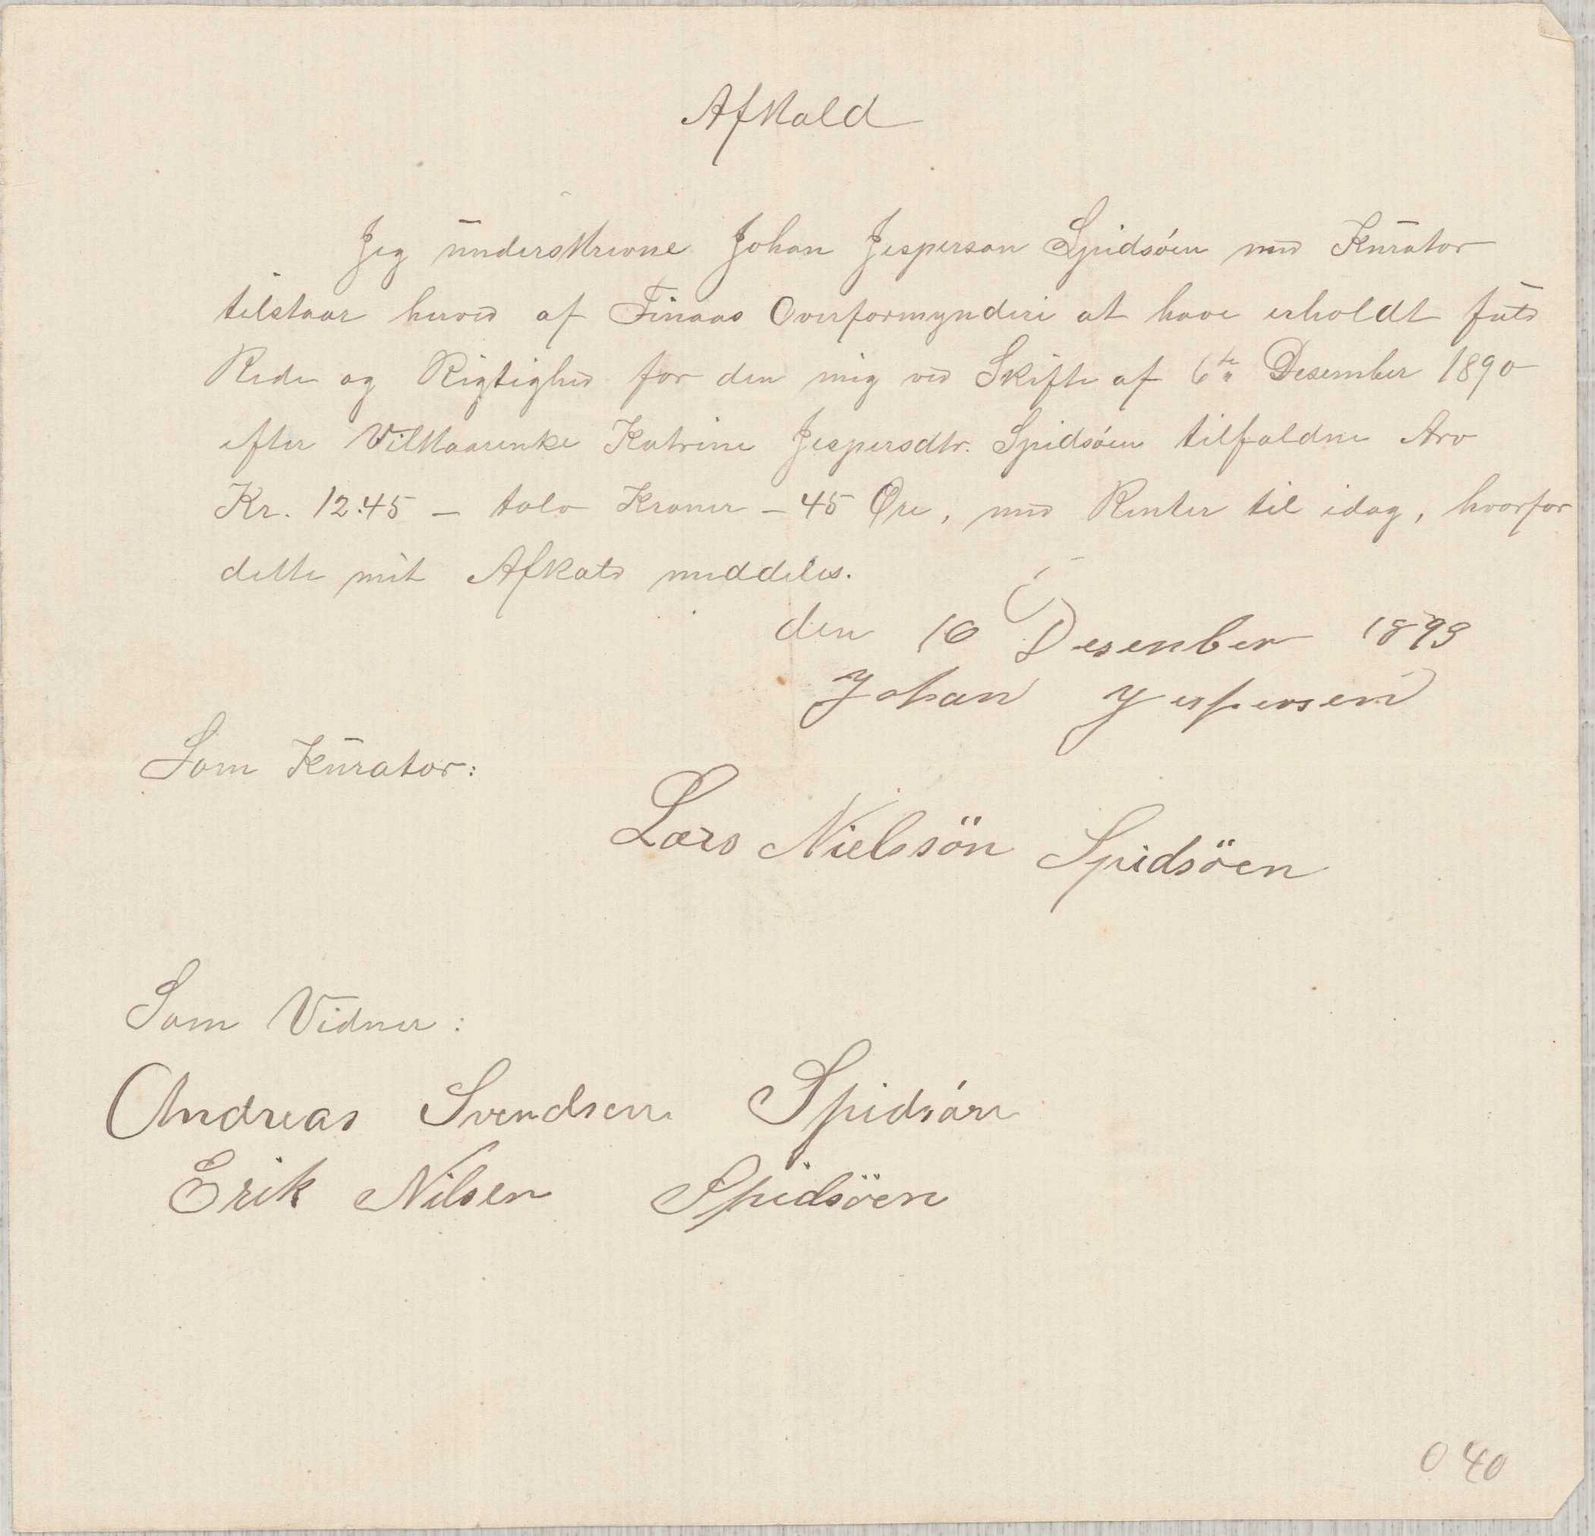 Afkald
Jeg underskrevne Johan Jesperson Spidsøen med Kurator
tilstaar herved af Finaas Overformynderi at have erholdt fuld
Rede og Rigtighed for den mig ved Skifte af 6te Desember 1890
efter Vilkaarenke Katrine Jespersdtr. Spidsøen tilfaldne Arv
Kr. 12.45 – tolv Kroner – 45 Øre, med Renter til idag, hvorfor
dette mit Afkald meddeles.
den 16 Desember 1899
Johan Jespersen
Som Kurator:
Lars Nielsön Spidsöen
Som Vidner:
Andreas Svendsen Spidsøen
Erik Nilsen Spidsöen
040